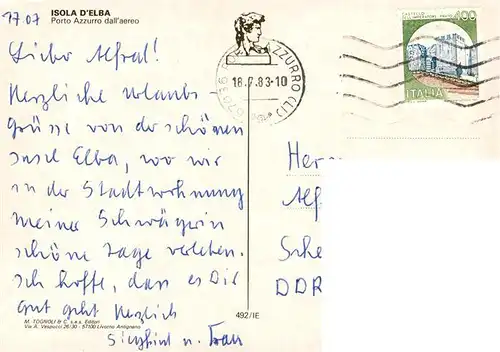 1707
ISOLA D'ELBA
Porto Azzurro dall'aereo
Lieber Alfred!
Herzliche Urlaubs-
grüsse von der schönen
Insel Elba, wo wir
in der Stadtwohnung
meiner Schwägerin
schöne Tage verleben.
Ich hoffe, dass es Dir
gut geht Herzlich
Siegfried u. Frau
M. TOGNOLI & C. s.a.s. Editori
Via A. Vespucci 26/30 - 57100 Livorno Antignano
492/IE
AZZURRO (LI)
18.7.83-10
400
ITALIA
Her
Alf
Sche
DDR